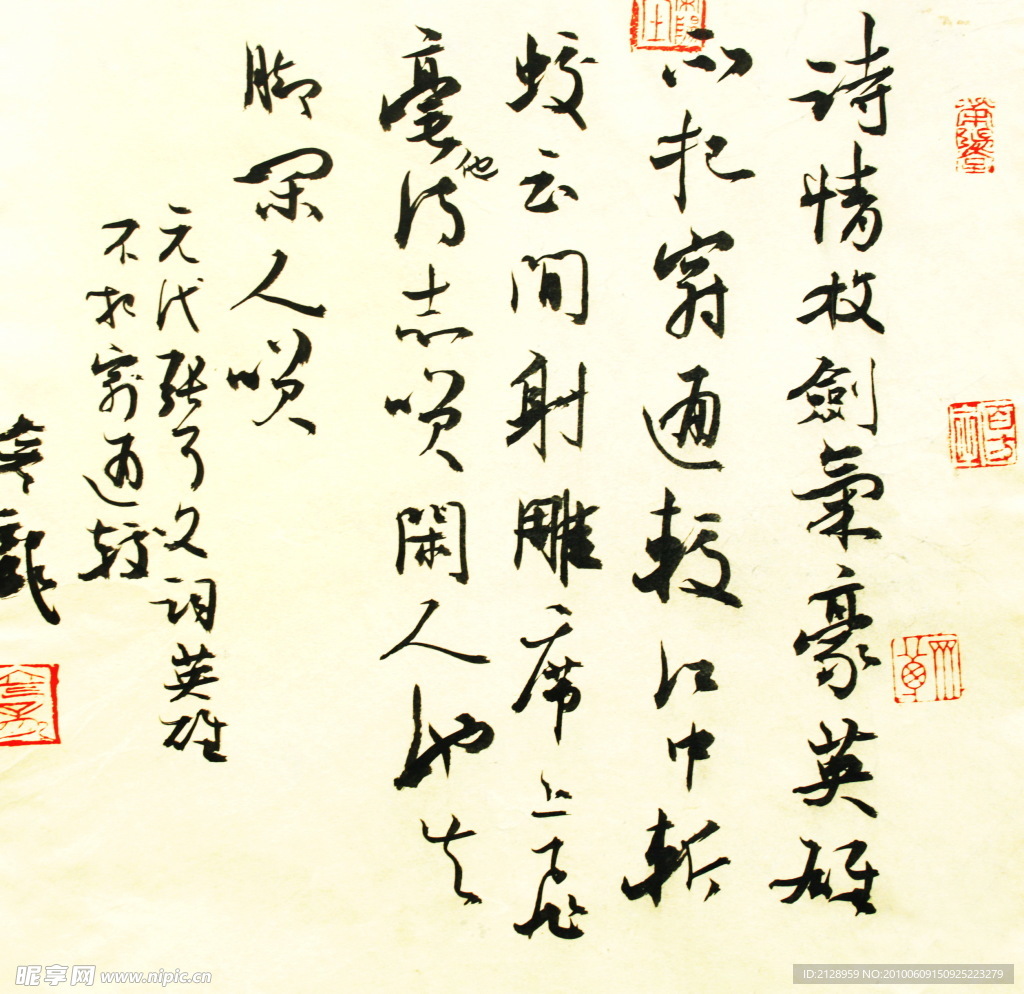 詩情放劍氣豪英雄
不把窮通較江中斬
蛟云間射雕席上挥
毫他得志咲閑人他失
脚闲人咲
元代張可久词英雄
不把窮通較
昵享网 www.nipic.cn
ID:2128959 NO:20100609150925223279